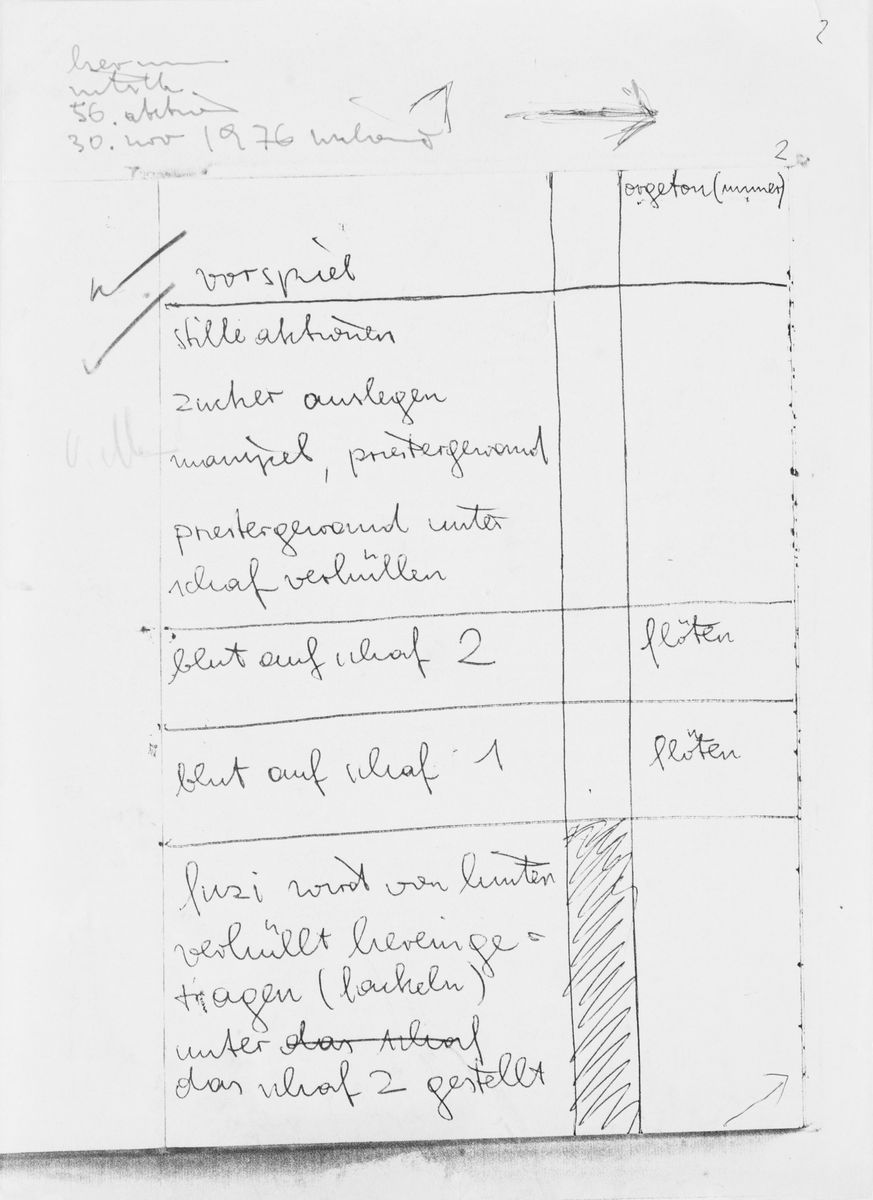 2
hermann
nitsch
56. aktion
30. nov 1976
2
orgelton (immer)
vorspiel
stille aktionen
zucker auslegen
manipel, priestergewand
priestergewand unter
schaf verhüllen
blut auf schaf 2
flöten
blut auf schaf 1
flöten
wird von hinten
verhüllt hereinge=
tragen (fackeln)
unter das schaf
das schaf 2 gestellt